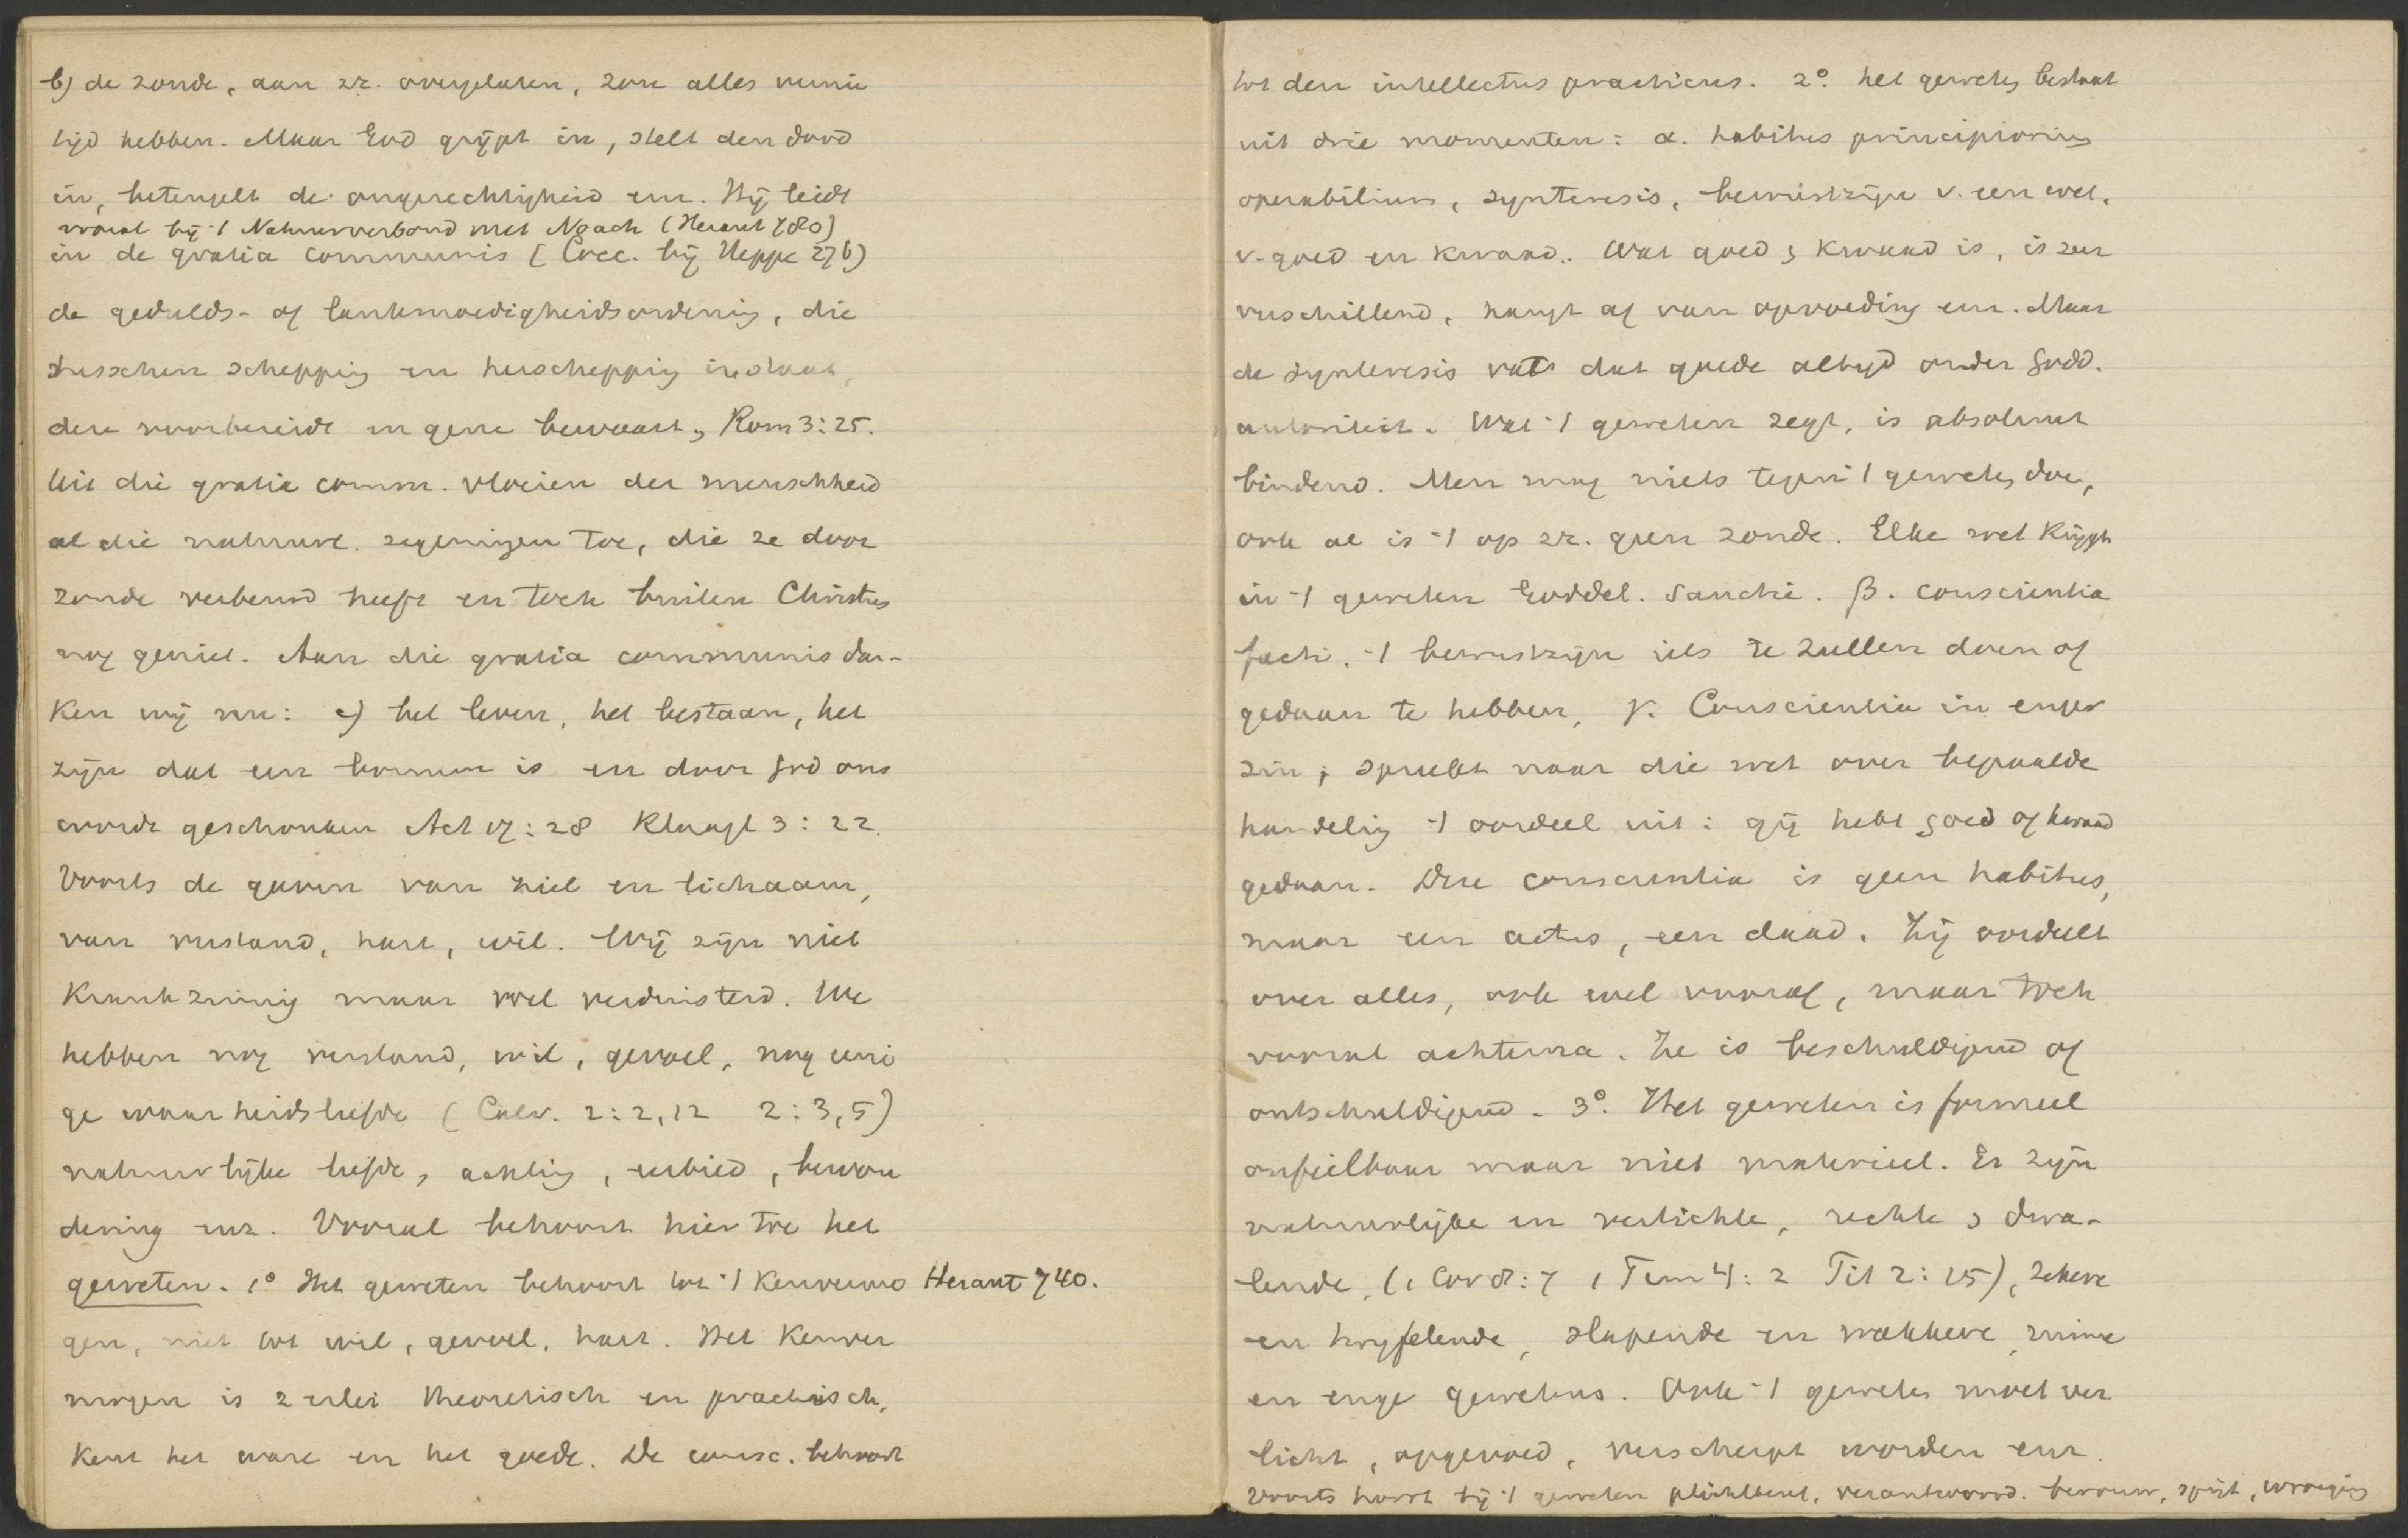 b) de zonde, aan zz. overgelaten, zou alles vernie
tigd hebben. Maar God grijpt in, stelt den dood
in, beteugelt de ongerechtigheid enz. Hij leidt
vooral bij 't Natuurverbond met Noach (Heraut 780)
in de gratia communis (Cocc. bij Heppe 276)
de gedulds- of lankmoedigheidsordening, die
tusschen schepping en herschepping instaat,
deze voorbereidt en gene bewaart, Rom 3:25.
Uit die gratia comm. vloeien der menschheid
al die natuurl. zegeningen toe, die ze door
zonde verbeurd heeft en toch buiten Christus
nog geniet. Aan die gratia communis dan-
ken wij nu: a) het leven, het bestaan, het
zijn dat een bonum is en door God ons
wordt geschonken Act 17:28 Klaagl 3:22.
Voorts de gaven van ziel en lichaam,
van verstand, hart, wil. Wij zijn niet
krankzinnig maar wel verduisterd. We
hebben nog verstand, wil, gevoel, nog eeni
ge waarheidsliefde (Calv. 2:2,12 2:3,5)
natuurlijke liefde, achting, eerbied, bewon
dering enz. Vooral behoort hier toe het
geweten. 1° Het geweten behoort tot 't kenvermo Heraut 740.
gen, niet tot wil, gevoel, hart. Het kenver
mogen is 2erlei theoretisch en practisch,
kent het ware en het goede. De consc. behoort
tot den intellectus practicus. 2° het geweten bestaat
uit drie momenten: α. habitus principiorum
operabilium, synteresis, bewustzijn v. een wet,
v. goed en kwaad. Wat goed & kwaad is, is zeer
verschillend, hangt af van opvoeding enz. Maar
de synteresis vat dat goede altijd onder Godd.
autoriteit. Wat 't geweten zegt, is absoluut
bindend. Men mag niets tegen 't geweten doen,
ook al is 't op zz. geen zonde. Elke wet krijgt
in 't geweten Goddel. sanctie. β. conscientia
facti, 't bewustzijn iets te zullen doen of
gedaan te hebben, γ. Conscientia in enger
zin; spreekt naar die wet over bepaalde
handeling 't oordeel uit: gij hebt goed of kwaad
gedaan. Deze conscientia is geen habitus,
maar een actus, een daad. Zij oordeelt
over alles, ook wel vooraf, maar toch
vooral achterna. Ze is beschuldigend of
ontschuldigend. 3° Het geweten is formeel
onfeilbaar maar niet materieel. Er zijn
natuurlijke en verlichte, rechte & dwa-
lende, (1 Cor 8:7 1 Tim 4:2 Tit 2:15), zekere
en twijfelende, slapende en wakkere, ruime
en enge gewetens. Ook 't geweten moet ver
licht, opgevoed, verscherpt worden enz.
Voorts hoort bij 't geweten plichtbesef, verantwoord. berouw, spijt, wroeging